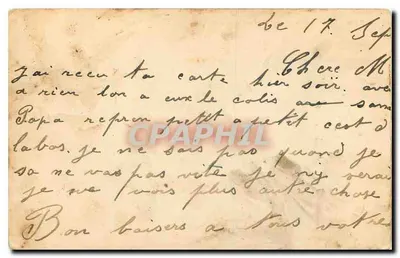 Le 17. Sep
Chere M
j'ai recu ta carte hier soir. ave
a rien lon a eux le colis au sam
Papa repren petit a petit cest d
labas. je ne sais pas quand je
sa ne vas pas vite je n'y verai
je ne vois plus autre chose
Bon baisers a tous votre
CPAPHIL